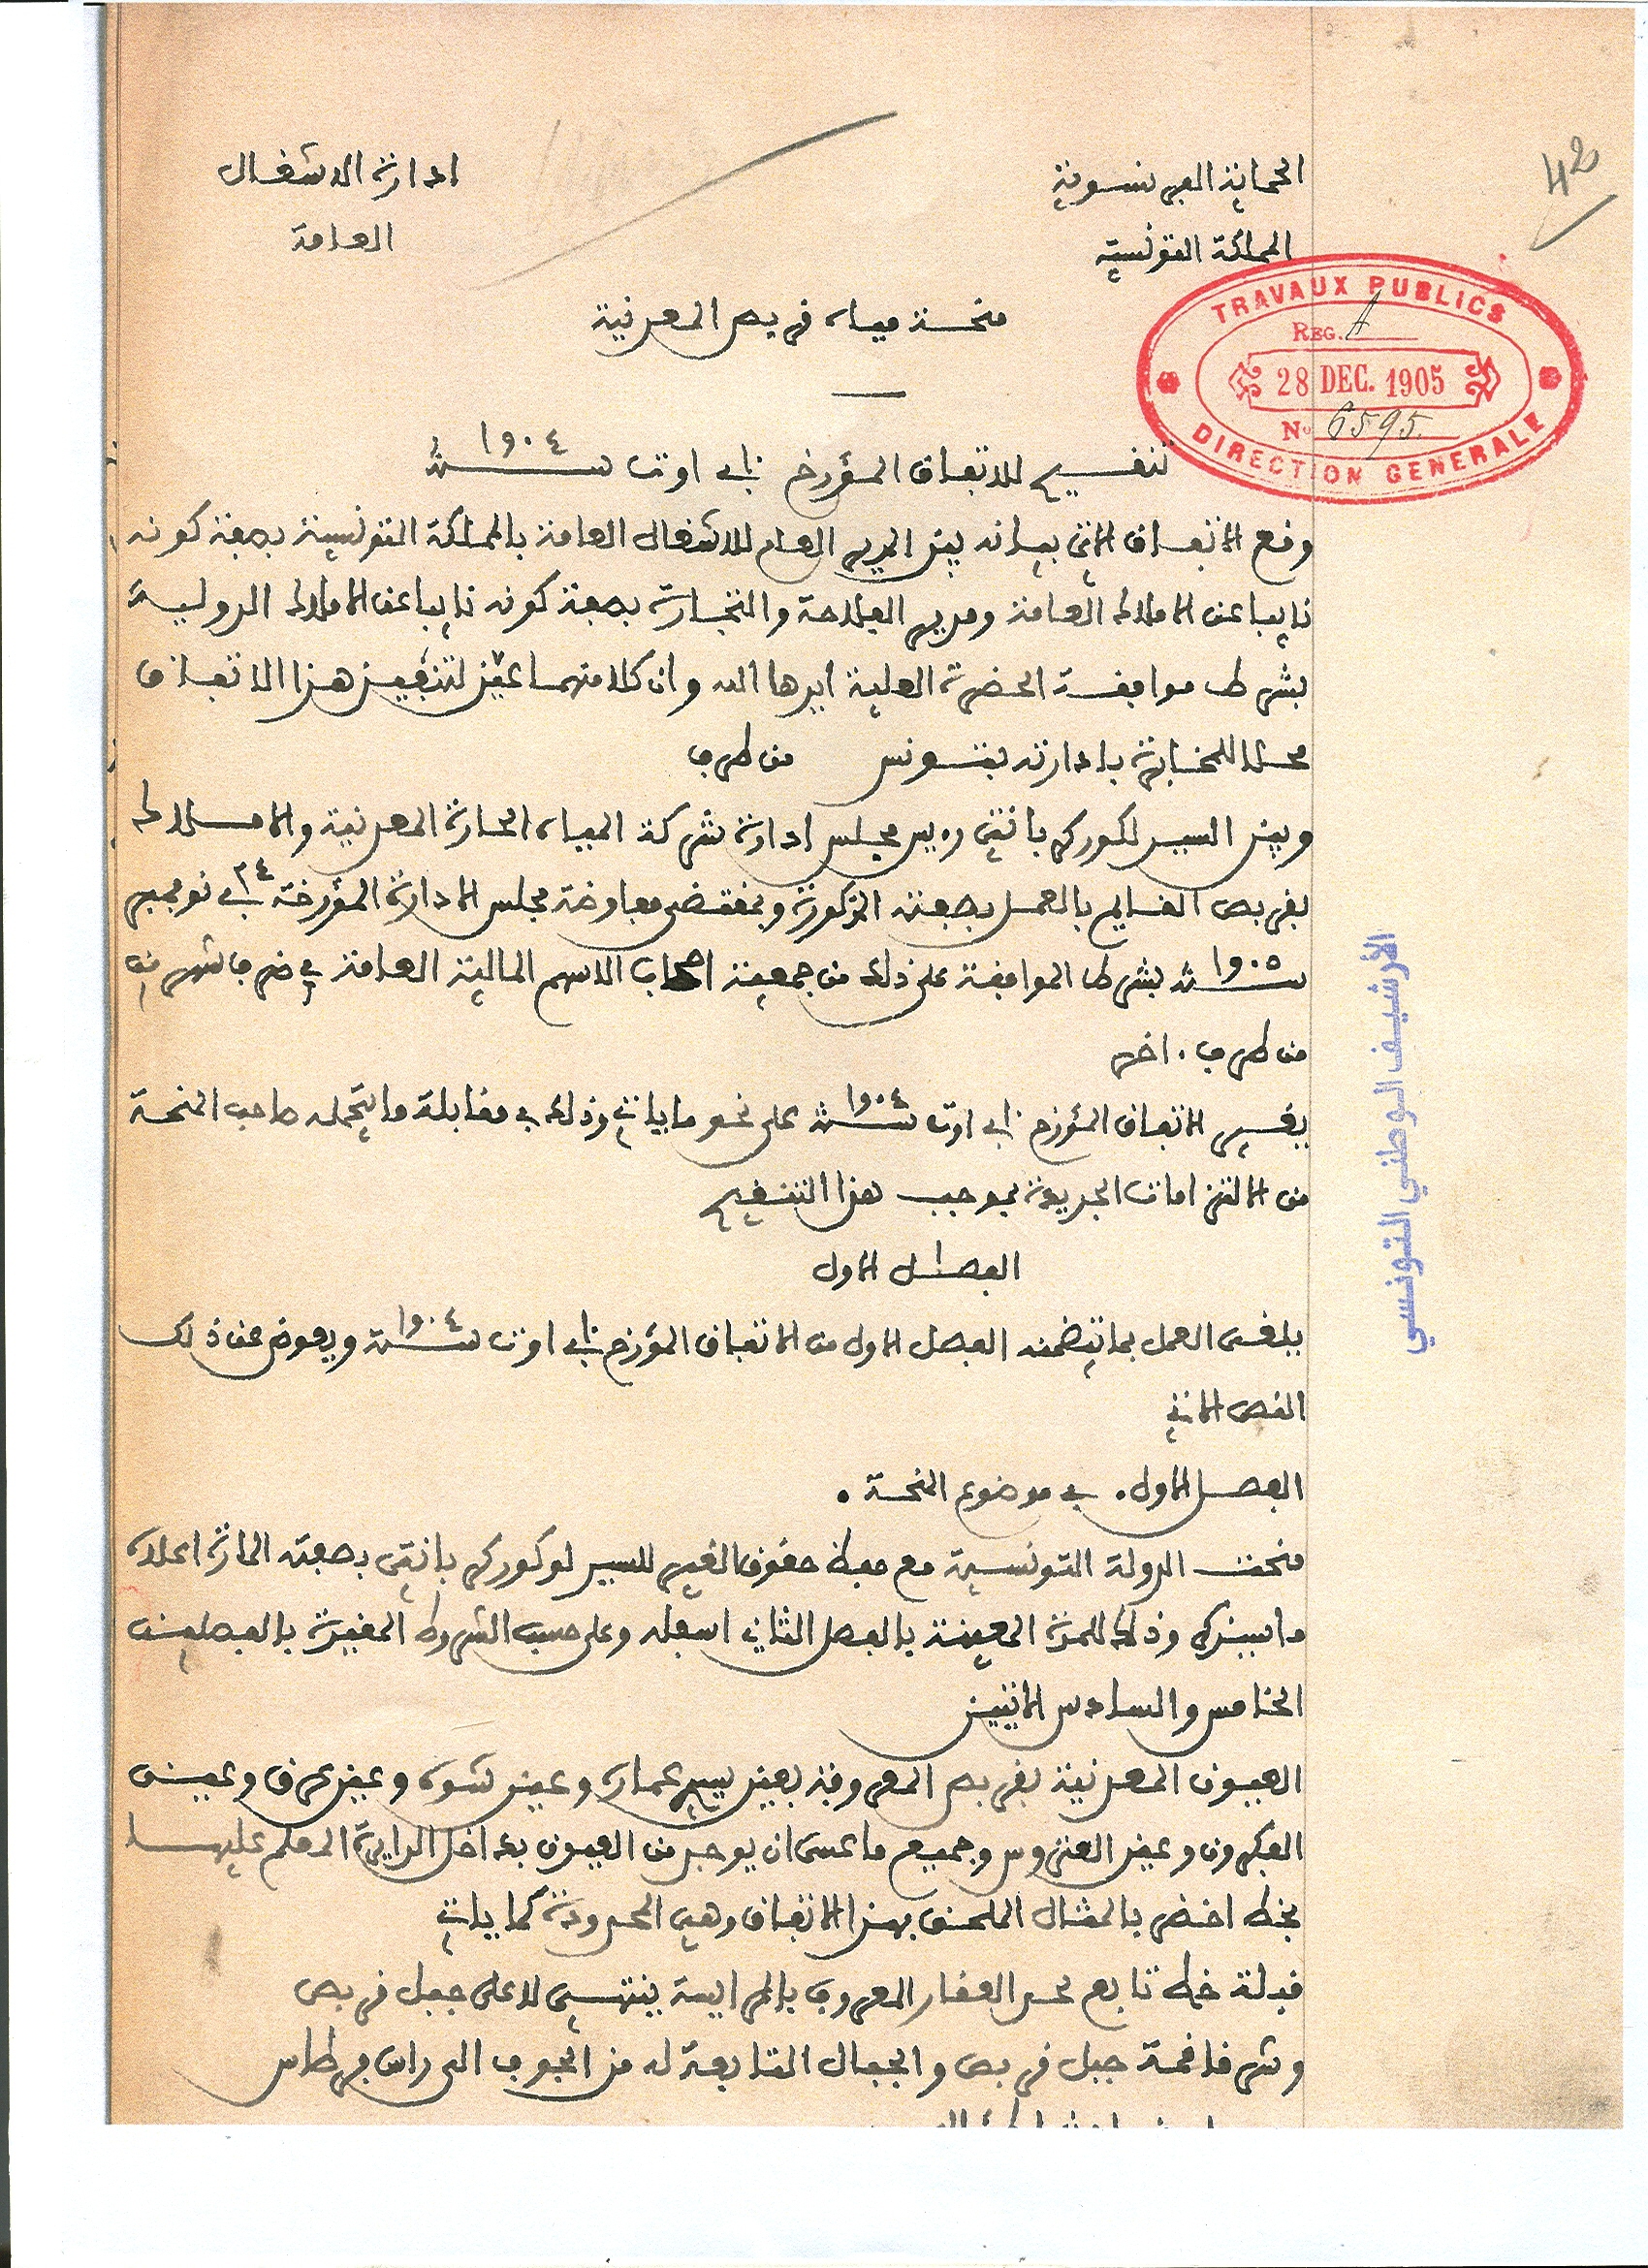 42
الحماية الفرنسوية
ادارة الاشغال
المملكة التونسية
العامة
TRAVAUX PUBLICS
REG. A
28 DEC. 1905
N° 6595
DIRECTION GENERALE
منحة مياه قربص المعدنية
تنقيح للاتفاق المؤرخ في اوت سنة ١٩٠٤
وقع الاتفاق الاتي بيانه بين المدير العام للاشغال العامة بالمملكة التونسية بصفة كونه
نايبا عن الاملاك العامة ومدير الفلاحة والتجارة بصفة كونه نايبا عن الاملاك الدولية
بشرط موافقة الحضرة العلية ايدها الله وان كلا منهما عين لتنفيذ هذا الاتفاق
محلا للمخابرة بادارته بتونس من طرف
وبين السيد لكوركو بانتي رءيس مجلس ادارة شركة المياه الحارة المعدنية والاملاك
بقربص القايم بالعمل بصفته المذكورة وبمقتضى مفاوضة مجلس الادارة المؤرخة في ٢٤ نوفمبر
سنة ١٩٠٥ بشرط الموافقة على ذلك من جمعية اصحاب الاسهم المالية العامة في ظرف شهرين
من طرف ءاخر
يغير الاتفاق المؤرخ في اوت سنة ١٩٠٤ على نحو ما ياتي وذلك في مقابلة ما يتحمله صاحب المنحة
من الالتزامات الجديدة بموجب هذا التنقيح
الفصل الاول
يلغى العمل بما تضمنه الفصل الاول من الاتفاق المؤرخ في اوت سنة ١٩٠٤ ويعوض عن ذلك
النص الاتي
الفصل الاول . في موضوع المنحة .
منحت الدولة التونسية مع حفظ حقوق الغير للسيد لوكوركو بانتي بصفته المارة اعلاه
ما سيذكر وذلك للمدة المعينة بالفصل الثاني اسفله وعلى حسب الشروط المقيدة بالفصلين
الخامس والسادس الاتيين
العيون المعدنية بقربص المعروفة بعين بيير عمارة وعين شوه وعين عرق وعين
الفكرون وعين العتروس وجميع ما عسى ان يوجد من العيون بداخل الدايرة المعلم عليها
بخط اخضر بالمثال الملحق بهذا الاتفاق وهي المحدودة كما ياتي
قبلة خط تابع لحد العقار المعروف بالمرايسة ينتهي لاعلى جبل قربص
وشرقا قمة جبل قربص والجبال التابعة له من الجوف الى راس فرطاس
الأرشيف الوطني التونسي